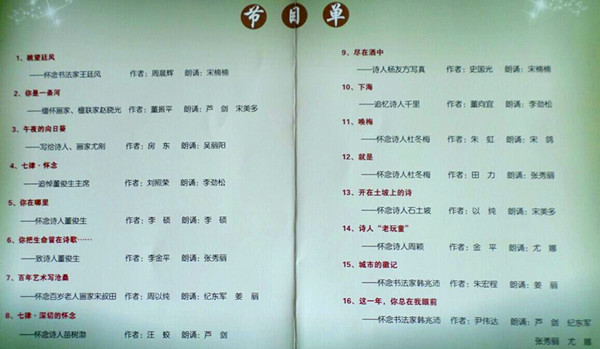 节目单
1、眺望廷风
——怀念书法家王廷风 作者：周晨辉 朗诵：宋楠楠
2、你是一条河
——缅怀画家、楹联家赵晓光 作者：董振平 朗诵：芦 剑 宋美多
3、午夜的向日葵
——写给诗人、画家尤刚 作者：房 东 朗诵：吴丽阳
4、七律·怀念
——追悼董俊生主席 作者：刘照荣 朗诵：李劲松
5、你在哪里
——怀念诗人董俊生 作者：李 硕 朗诵：李 硕
6、你把生命留在诗歌……
——致诗人董俊生 作者：李金平 朗诵：张秀丽
7、百年艺术写沧桑
——怀念百岁老人画家宋叔田 作者：周以纯 朗诵：纪东军 姜 丽
8、七律·深切的怀念
——怀念诗人苗树渤 作者：汪 蛟 朗诵：芦 剑
9、尽在酒中
——诗人杨友方写真 作者：史国光 朗诵：宋楠楠
10、下海
——追忆诗人千里 作者：董向宜 朗诵：李劲松
11、唤梅
——怀念诗人杜冬梅 作者：朱 虹 朗诵：宋 鸽
12、就是
——怀念诗人杜冬梅 作者：田 力 朗诵：张秀丽
13、开在土坡上的诗
——怀念诗人石土坡 作者：以 纯 朗诵：宋美多
14、诗人“老玩童”
——怀念诗人周颖 作者：金 平 朗诵：尤 娜
15、城市的徽记
——怀念书法家韩兆沛 作者：朱宏程 朗诵：姜 丽
16、这一年，你总在我眼前
——怀念书法家韩兆沛 作者：尹伟达 朗诵：芦 剑 纪东军
张秀丽 尤 娜